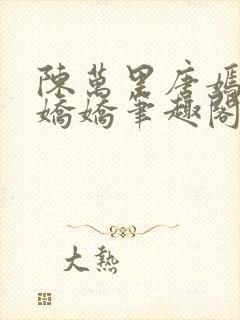 陳萬里唐嫣
嬌嬌筆趣閣
大熱